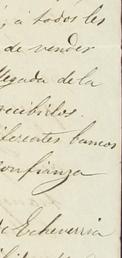 á todos les
de vender
llegada de la
recibirlos.
diferentes bancos
confianza
Echeverria